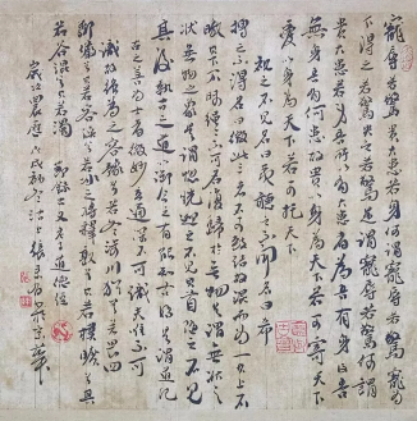 寵辱若驚貴大患若身何謂寵辱若驚寵為
下得之若驚失之若驚是謂寵辱若驚何謂
貴大患若身吾所以有大患者為吾有身及吾
無身吾有何患故貴以身為天下若可寄天下
愛以身為天下若可托天下
視之不見名曰夷聽之不聞名曰希
搏之不得名曰微此三者不可致詰故混而為一其上不
皦其下不昧繩繩不可名復歸於無物是謂無狀之
狀無物之象是謂惚恍迎之不見其首隨之不見
其後執古之道以御今之有能知古始是謂道紀
古之善為士者微妙玄通深不可識夫唯不可
識故強為之容豫兮若冬涉川猶兮若畏四
鄰儼兮其若客渙兮若冰之將釋敦兮其若樸曠兮其
若谷混兮其若濁 節錄 老子道德經
歲次 戊戌初冬沽上張 於京華